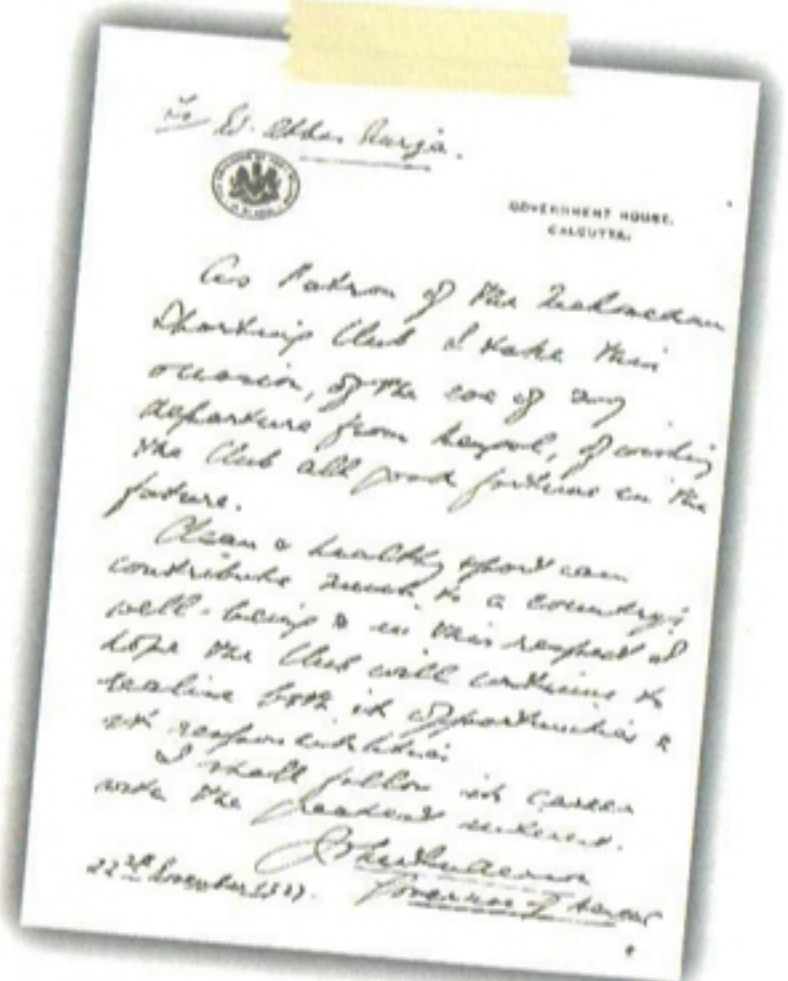 To S. Abbas Mirza.
GOVERNMENT HOUSE,
CALCUTTA.
As Patron of the Mohamedan
Sporting Club I take this
occasion, of the eve of my
departure from Bengal, of wishing
the Club all good fortune in the
future.
Clean & healthy sport can
contribute much to a country's
well-being & in this respect I
hope the Club will continue to
realise both its opportunities &
its responsibilities
I shall follow its career
with the greatest interest.
John Anderson
22nd November 1937. Governor of Bengal